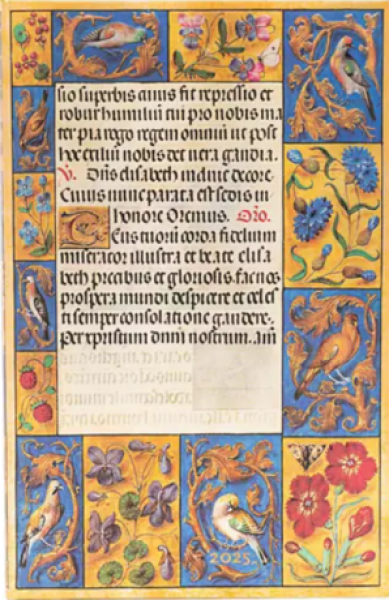 sio superbis cuius fit repressio et
robur humiliu cui pro nobis ma
ter pia rogo regem omniu ut post
hoc exiliu nobis det uera gaudia.
V. Dns elisabeth induit decore.
Cuius nunc parata est sedis in
honore Oremus. Oro.
Deus tuoru corda fidelium
miserator illustra et beate elisa
beth precibus et gloriosis fac nos
prospera mundi despicere et celes
ti semper consolatione gaudere.
Per xpristum dnm nostrum. am
2025